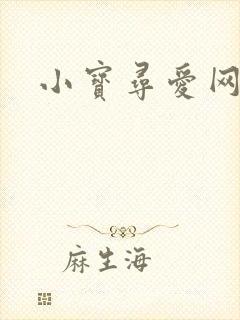 小寳尋愛网
麻生海